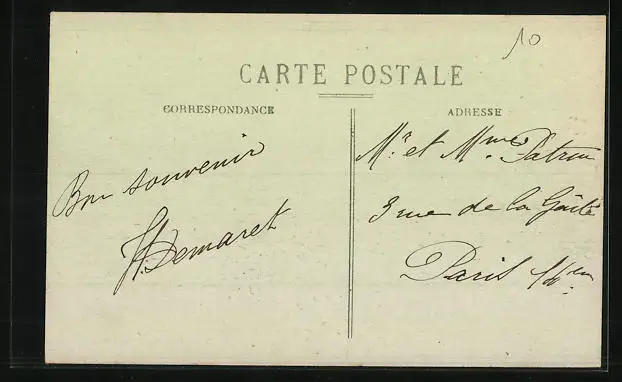 10
CARTE POSTALE
CORRESPONDANCE
ADRESSE
Bon souvenir
H. Demaret
Mr. et Mme. Patron
3 rue de la Gaîté
Paris 14em